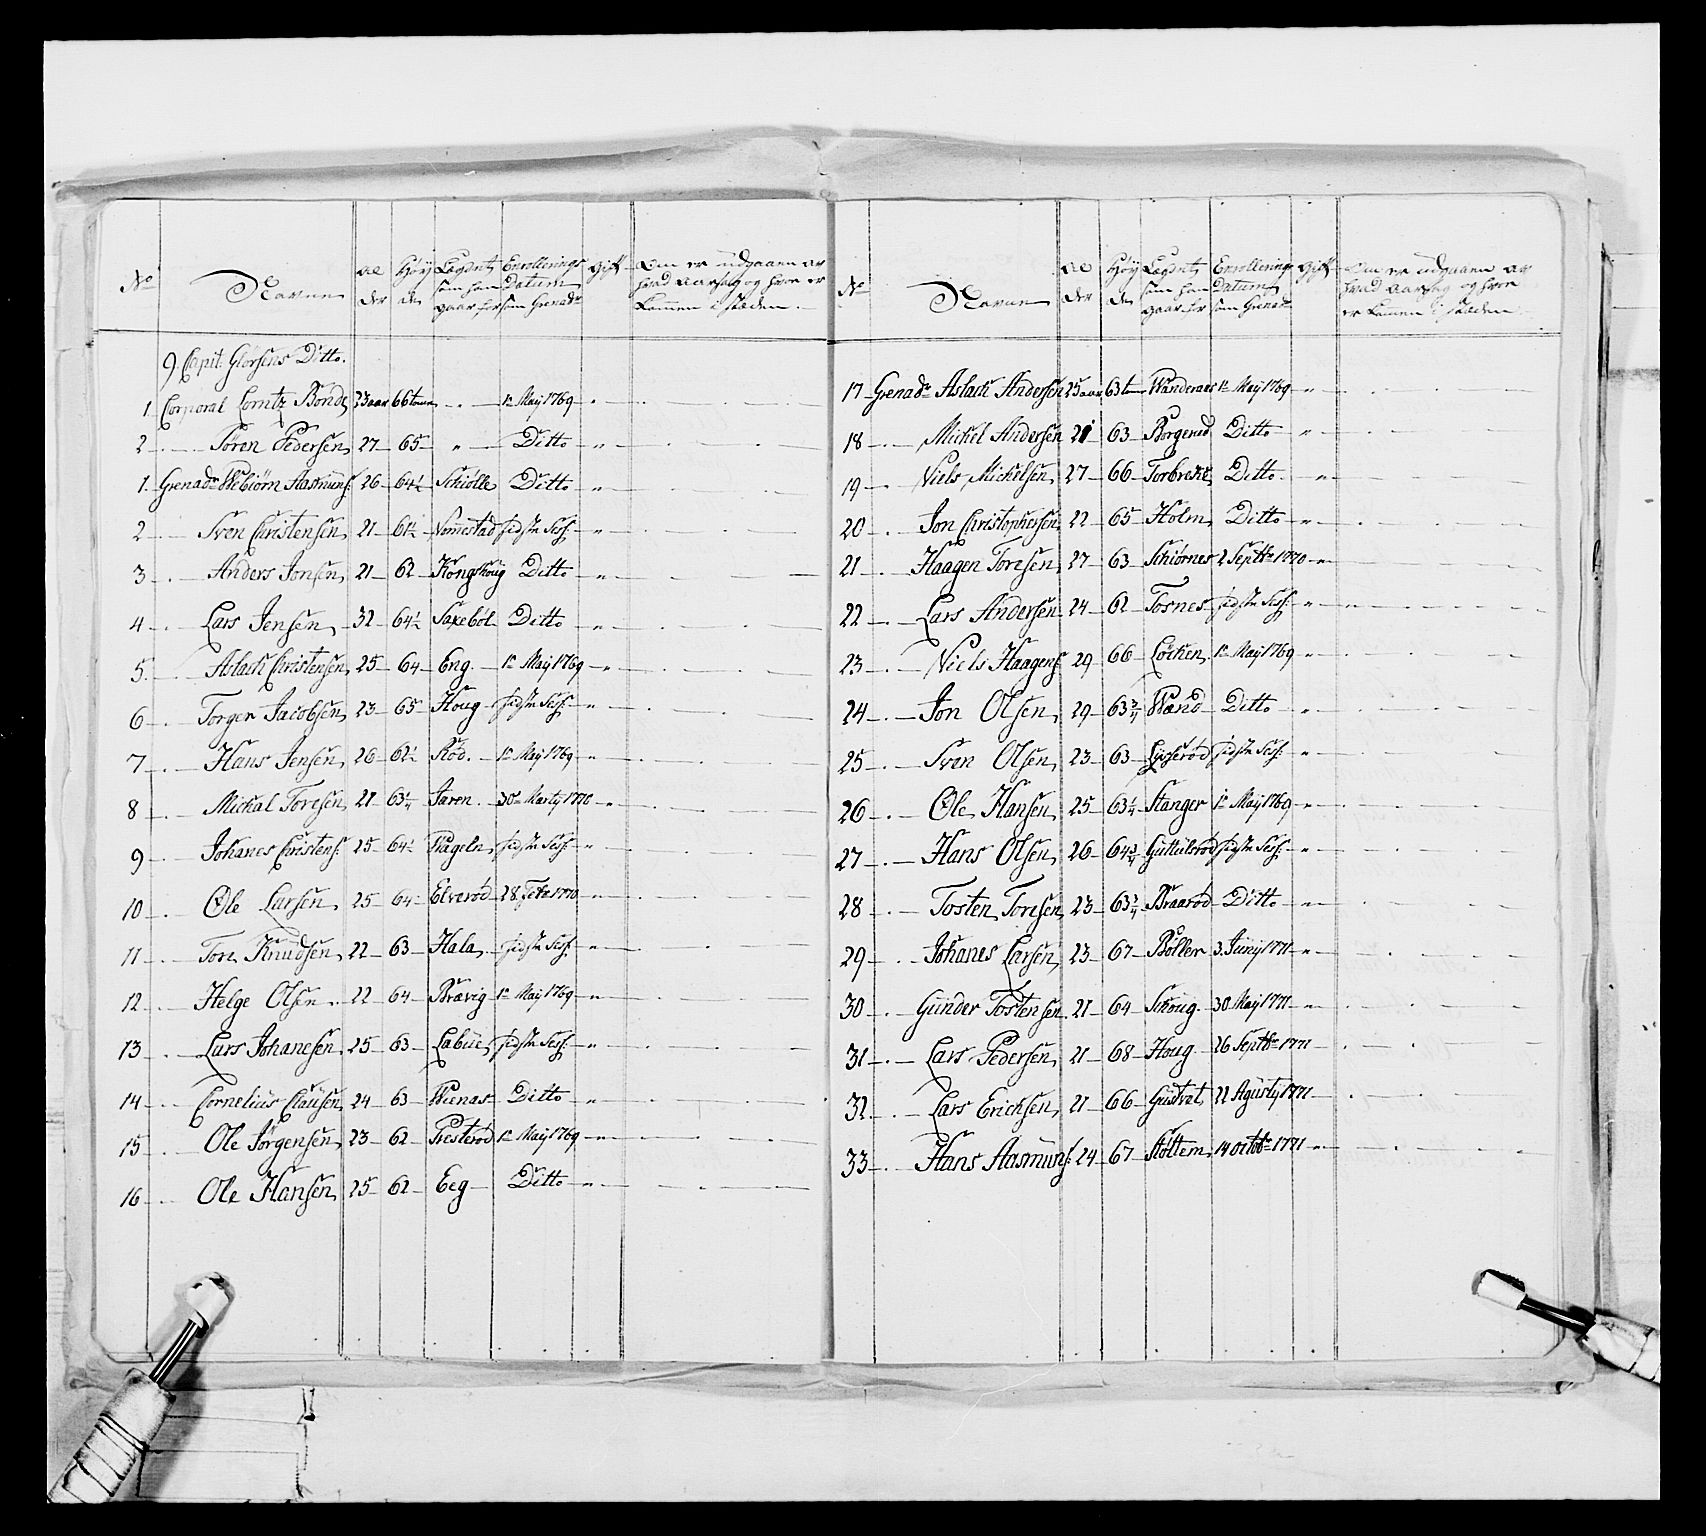 No Navne Al der Høy de Legdet som han gaar for Enrollerings Datum som Grenadr Gift Om er udgaaen av hvad aarsag og hvor er kommen i stæden
9. Capit. Glørsens Ditto.
1. Corporal Lorntz Bonde 23 aar 66 tom " 1te Maij 1769 "
2 Søren Pedersen 27 65 " Ditto "
1. Grenadr Webiørn Aasmuns: 26 64½ Schiølle Ditto "
2 Sven Christensen 21 61½ Nomestad sidste Sess: "
3 Anders Jonsen 21 62 Kongshoug Ditto "
4 Lars Jensen 32 64½ Saxebøl Ditto "
5 Aslach Christensen 25 64 Eng. 1te Maij 1769 "
6 Torger Jacobsen 23 65 Houg sidste Sess: "
7 Hans Jensen 26 62½ Rød. 1te Maij 1769 "
8 Michal Toresen 21 63¼ Jaren. 30te Marty 1770 "
9 Johanes Christens: 25 64½ Wageln sidste Sess: "
10 Ole Larsen 25 64 Elverød 28 Febr 1770
11 Tore Knudsen 22 63 Hala sidste Sess: "
12 Helge Olsen 22 64 Brævig 1te Maij 1769 "
13 Lars Johanesen 25 63 Labue sidste Sess: "
14 Cornelius Clausen 24 63 Wienas Ditto "
15 Ole Jørgensen 23 62 Presterød 1te Maij 1769 "
16 Ole Hansen 25 62 Eeg Ditto "
No Navne Al der Høy de Legdet som han gaar for Enrollerings Datum som Grenadr Gift Om er udgaaen av hvad aarsag og hvor er kommen i stæden
17 Grenadr Aslach Andersen 25 aar 63 tom Wanderaas 1te Maij 1769 "
18 Michel Andersen 21 63 Borgened Ditto "
19 Niels Michelsen 27 66 Torbrekke Ditto "
20 Jon Christophersen 22 65 Holm Ditto "
21 Haagen Toresen 27 63 Schiørnes 2 Septbr 1770 "
22 Lars Andersen 24 62 Fosnes sidste Sess: "
23 Niels Haagens: 29 66 Løcken 1te Maij 1769 "
24 Jon Olsen 29 63¾ Wand Ditto "
25 Sven Olsen 23 63 Lysserød sidste Sess: "
26 Ole Hansen 25 63¼ Stanger 1te Maij 1769 "
27 Hans Olsen 26 64¾ Guttulsrød sidste Sess: "
28 Tosten Toresen 23 63¾ Braarød Ditto "
29 Johanes Larsen 23 67 Boller 3 Junij 1771 "
30 Gunder Tostensen 21 64 Schoug 30 Maij 1771 "
31 Lars Pedersen 21 68 Houg 26 Septbr 1771 "
32 Lars Erichsen 21 66 Gustvet 22 Agusty 1771 "
33 Hans Aasmuns: 24 67 Støltem 14 Octobr 1771 "